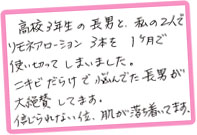 高校3年生の長男と、私の2人で
リモネアローション 3本を 1ヶ月で
使い切ってしまいました。
ニキビだらけで悩んでた長男が
大絶賛してます。
信じられない位、肌が落ち着いてます。